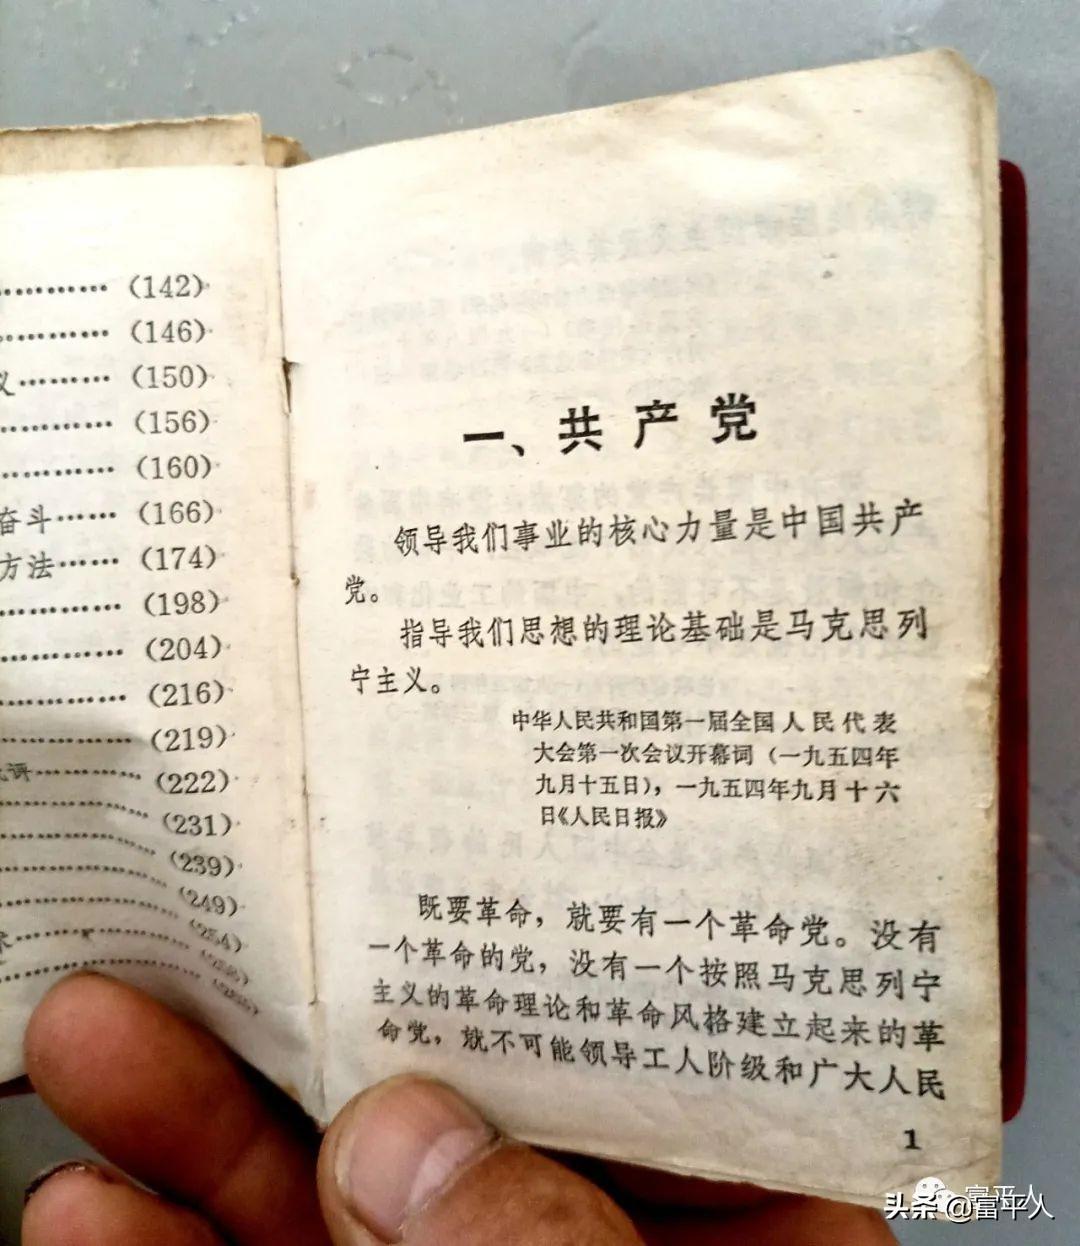 (142)
(146)
义………(150)
(156)
(160)
奋斗……(166)
方法……(174)
(198)
(204)
(216)
(219)
(222)
(231)
(239)
(249)
(254)
一、共产党
领导我们事业的核心力量是中国共产
党。
指导我们思想的理论基础是马克思列
宁主义。
中华人民共和国第一届全国人民代表
大会第一次会议开幕词（一九五四年
九月十五日），一九五四年九月十六
日《人民日报》
既要革命，就要有一个革命党。没有
一个革命的党，没有一个按照马克思列宁
主义的革命理论和革命风格建立起来的革
命党，就不可能领导工人阶级和广大人民
1
富平人
头条 @富平人